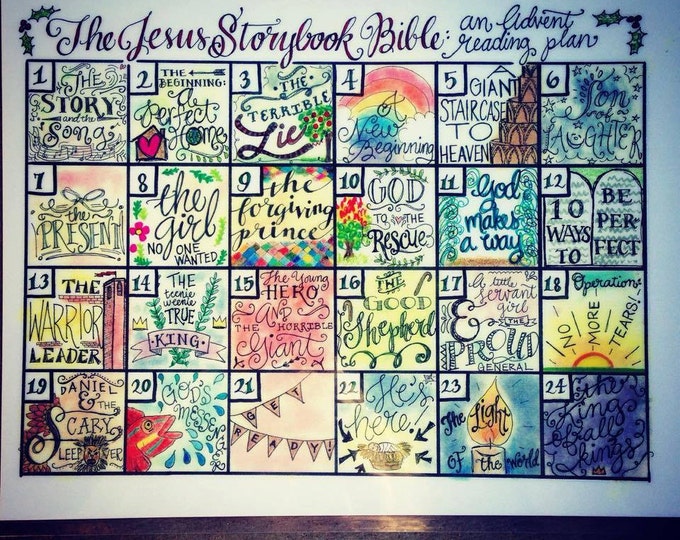 The Jesus Storybook Bible: an Advent
reading plan
1
THE
STORY
and the
Song
2
THE
BEGINNING:
a
Perfect
Home
3
THE
TERRIBLE
Lie
4
A
New
Beginning
5
A GIANT
STAIRCASE
TO
HEAVEN
6
Son
of
LAUGHTER
7
the
PRESENT
8
the
girl
NO ONE
WANTED
9
the
forgiving
prince
10
GOD
TO THE
RESCUE
11
God
makes
a way
12
10
WAYS
TO
BE
PER-
FECT
13
THE
WARRIOR
LEADER
14
THE
teenie
weenie
TRUE
KING
15
The Young
HERO
AND
THE HORRIBLE
Giant
16
THE
GOOD
Shepherd
17
A little
servant
girl
& THE
PROUD
GENERAL
18
Operation:
NO
MORE
TEARS!
19
DANIEL
& THE
SCARY
SLEEPOVER
20
GOD'S
MESSENGER
21
GET
READY!
22
He's
here!
23
The Light
OF the world
24
the
King
of all
kings